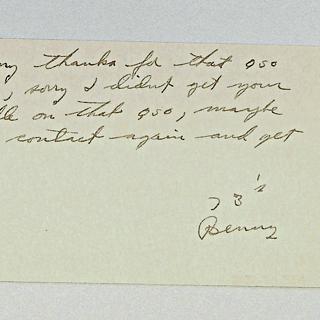 thanks for that QSO
, sorry I didnt get your
on that QSO, maybe
contact again and get
73's
Benny